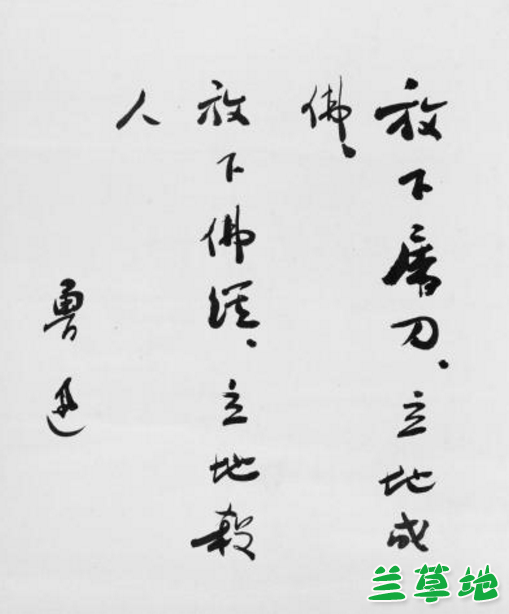 放下屠刀、立地成
佛、
放下佛經、立地殺
人
魯迅
兰草地